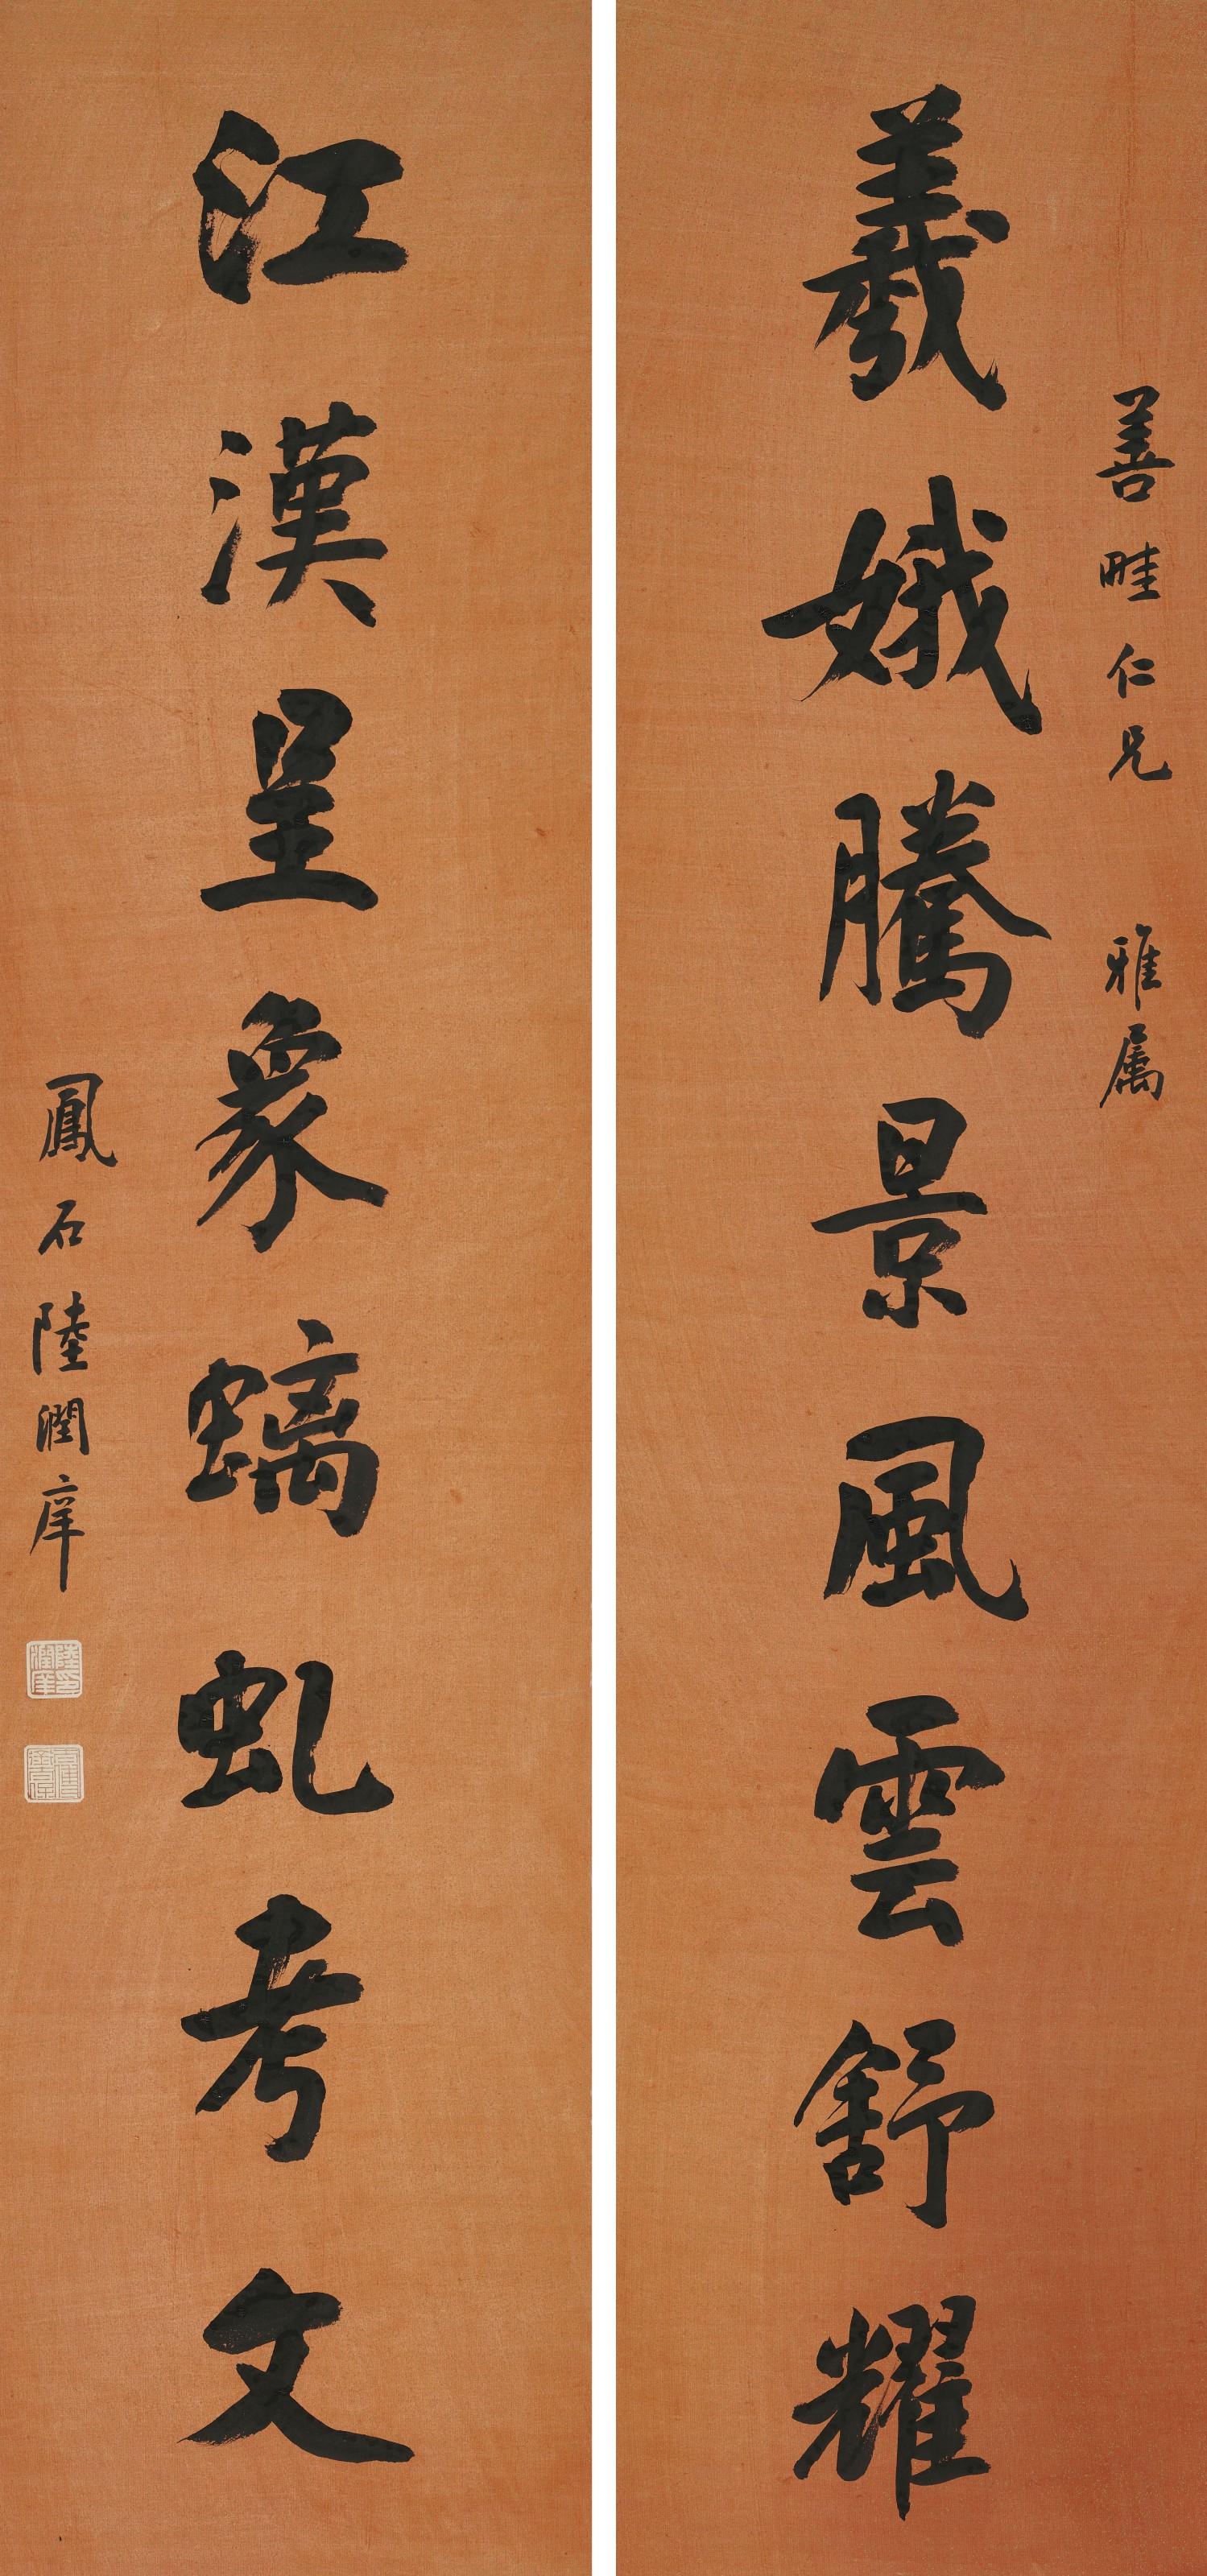 善畦仁兄 雅属
羲娥騰景風雲舒耀
江漢呈象螭虬考文
鳳石陸潤庠
陸潤庠印